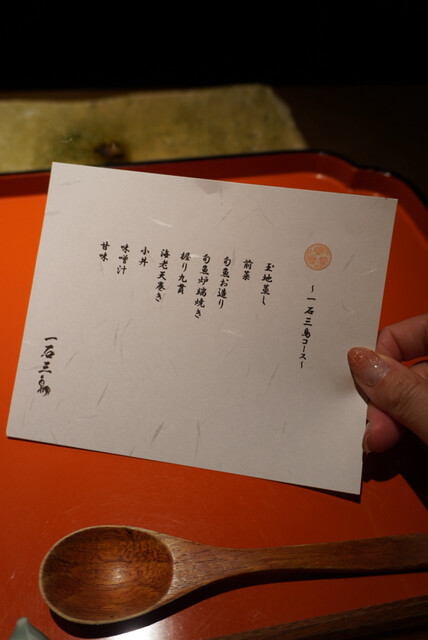 ～一石三鳥コース～
玉地蒸し
前菜
旬魚お造り
旬魚炉端焼き
握り九貫
海老天巻き
小丼
味噌汁
甘味
一石三鳥